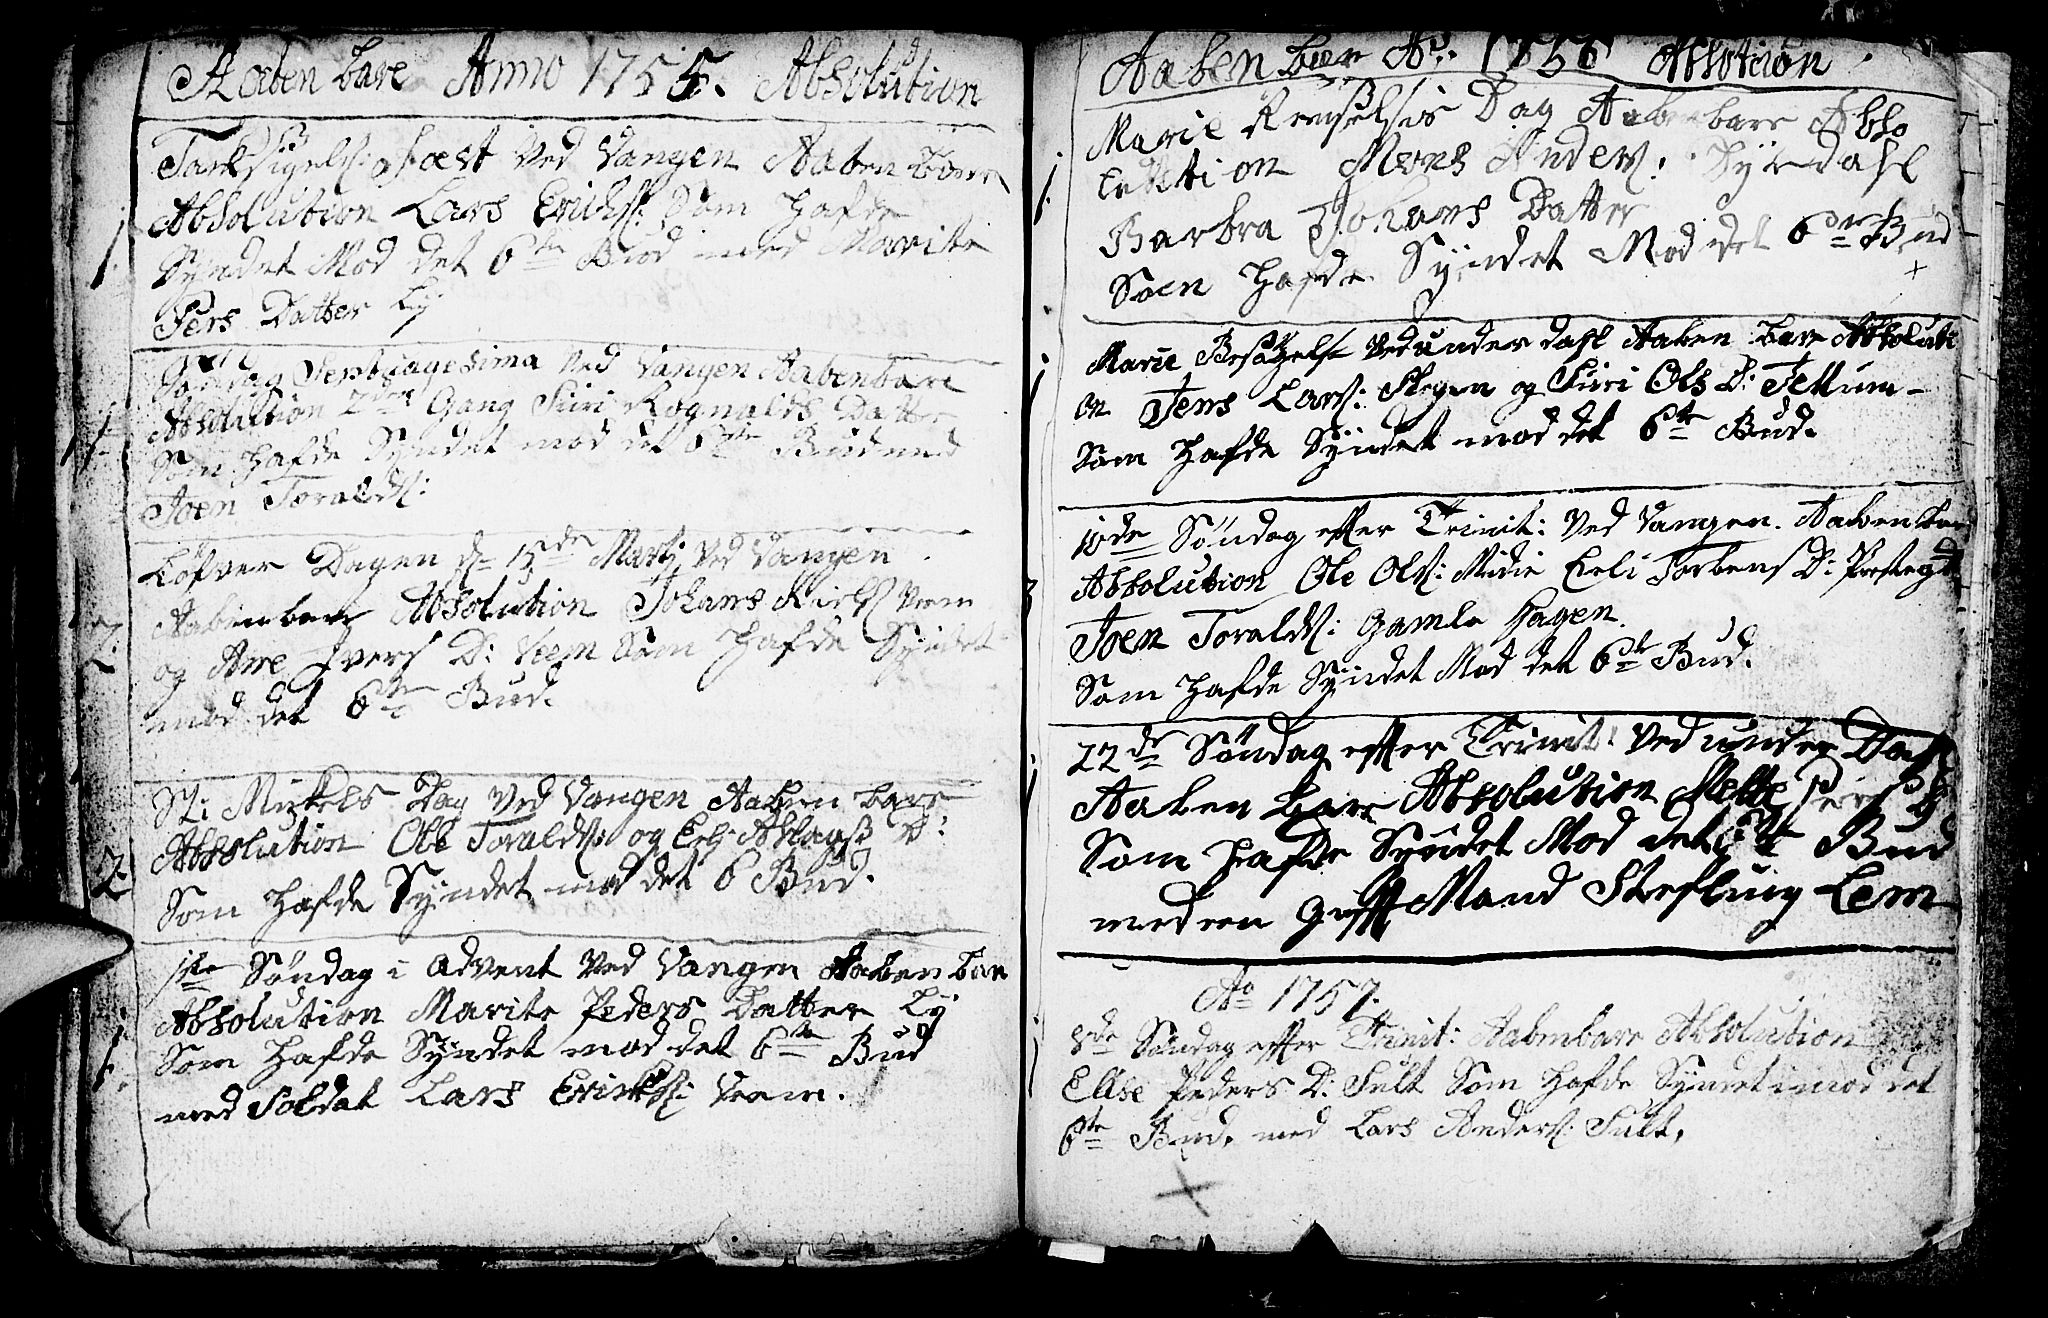 Aabenbare Anno 1755. Absolution
Taksigels: Fæst Ved Vangen Aabenbare
Absolution Lars Erichs: Som hafde
1. Syndet Mod det 6te Bud med Marite
Pers Datter Ly
Søndag Septuagesima Ved Vangen Aabenbare
Absolution 2den Gang Siri Rognalds Datter
1. Som hafde Syndet mod det 6te Bud med
Joen Toralds:
Løfver Dagen d= 13de Martj Ved Vangen
Aabenbare Absolution Johans Veem
2. og Ane Ivers D: Veem Som hafde Syndet
mod det 6te Bud.
St: Mikels Dag Ved Vangen Aabenbare
Absolution Ole Toralds: og Eli Aslags D:
2. Som hafde Syndet mod det 6 Bud.
1ste Søndag i Advent Ved Vangen Aabenbare
Absolution Marite Peders Datter Ly
1. Som hafde Syndet mod det 6te Bud
med Soldat Lars Erichs: Veem.
Aabenbare Ao. 1756 Absolution.
Marie Renselses Dag Aabenbare Abso
1. lution Mons Anders:
Barbra Johans Datter
Som hafde Syndet Mod det 6te Bud
Marie Besøgelse Ved under dahl Aabenbare Absoluti
1 on Jens Lars: Skogen og Siri Ols D:
Som hafde Syndet mod det 6te Bud.
10de Søndag effter Trinit: Ved Vangen. Aabenbare
3 Absolution Ole Ols: Midie Eeli Torbens D:
Joen Toralds: Gamle Hagen.
Som hafde Syndet Mod det 6te Bud.
22de Søndag effter Trinit: Ved under Dahl
1 Aabenbare Absolution Mette Pers D
Som hafde Syndet Mod det 6te Bud
med en Gifft Mand Lem
Ao 1757.
8de Søndag effter Trinit: Aabenbare Absolution
1 Ellse Peders D: Sult Som hafde Syndet imod det
6te Bud. med Lars Anders: Sult.